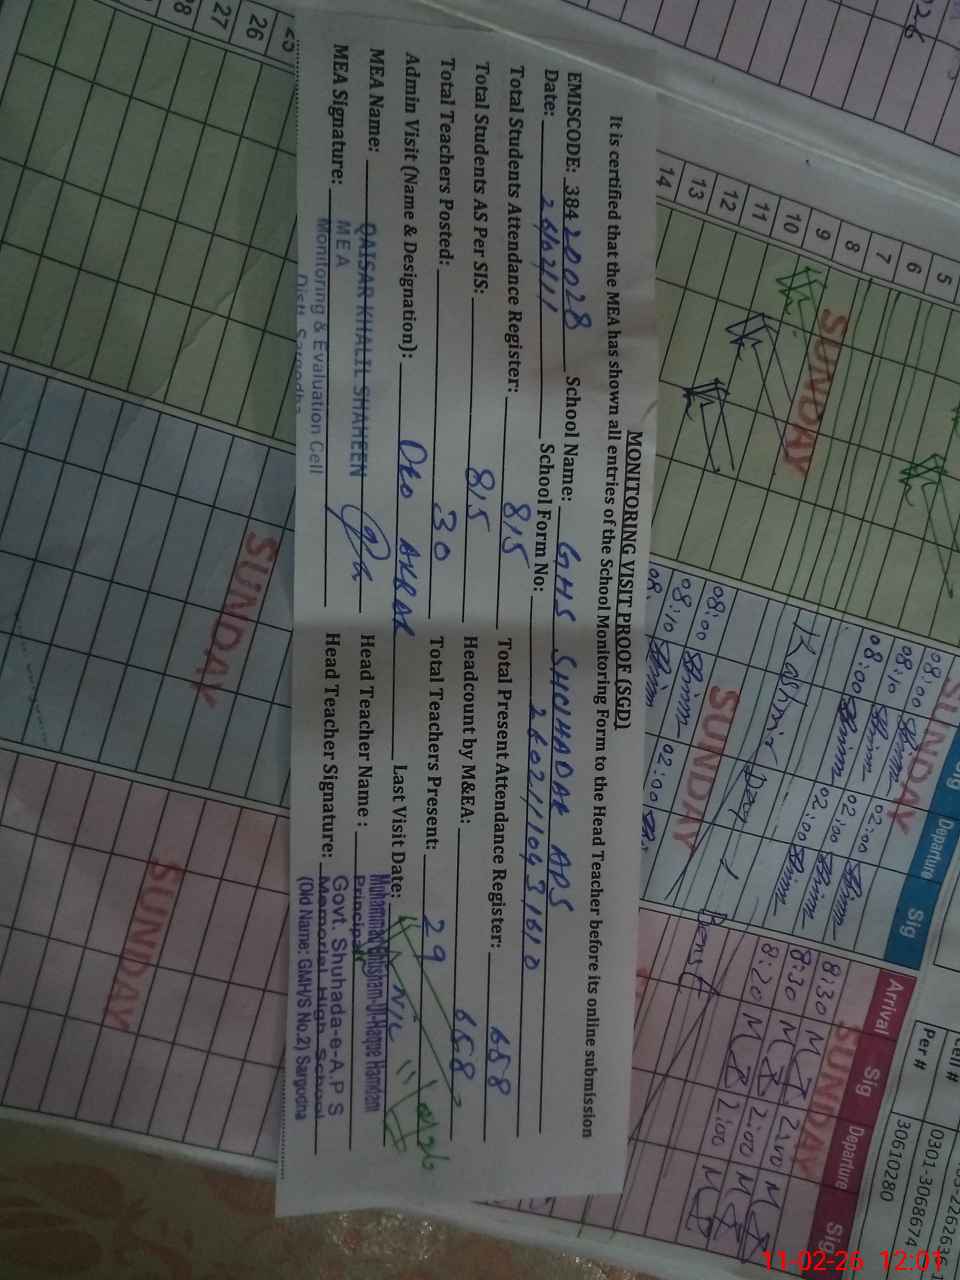 MONITORING VISIT PROOF (SGD)
It is certified that the MEA has shown all entries of the School Monitoring Form to the Head Teacher before its online submission
EMISCODE: 38420028 School Name: GHS SHUHADAA APS
Date: 26/02/11 School Form No: 26021109316 10
Total Students Attendance Register: 815 Total Present Attendance Register: 658
Total Students AS Per SIS: 815 Headcount by M&EA: 658
Total Teachers Posted: 30 Total Teachers Present: 29
Admin Visit (Name & Designation): DEO AKBAR Last Visit Date:
MEA Name: QAISAR KHALIL SHAHEEN Head Teacher Name :
MEA
MEA Signature: Head Teacher Signature:
Monitoring & Evaluation Cell
Distt. Sargodha
Principal
Govt. Shuhada-e-A.P.S
Memorial High School
(Old Name: GMH/S No.2) Sargodha
5
6
7
8
9
10
11
12
13
14
26
27
28
SUNDAY
SUNDAY
SUNDAY
SUNDAY
SUNDAY
SUNDAY
SUNDAY
Sig Departure Sig
Arrival Sig Departure Sig
08:00
08:10
08:00 02:00
02:00
Kashmir Day
08:00
08:10
08: 02:00
8:30 2:00
8:30 2:00
8:20 2:00
Cell #
0301-3068674
Per # 30610280
11-02-26 12:01